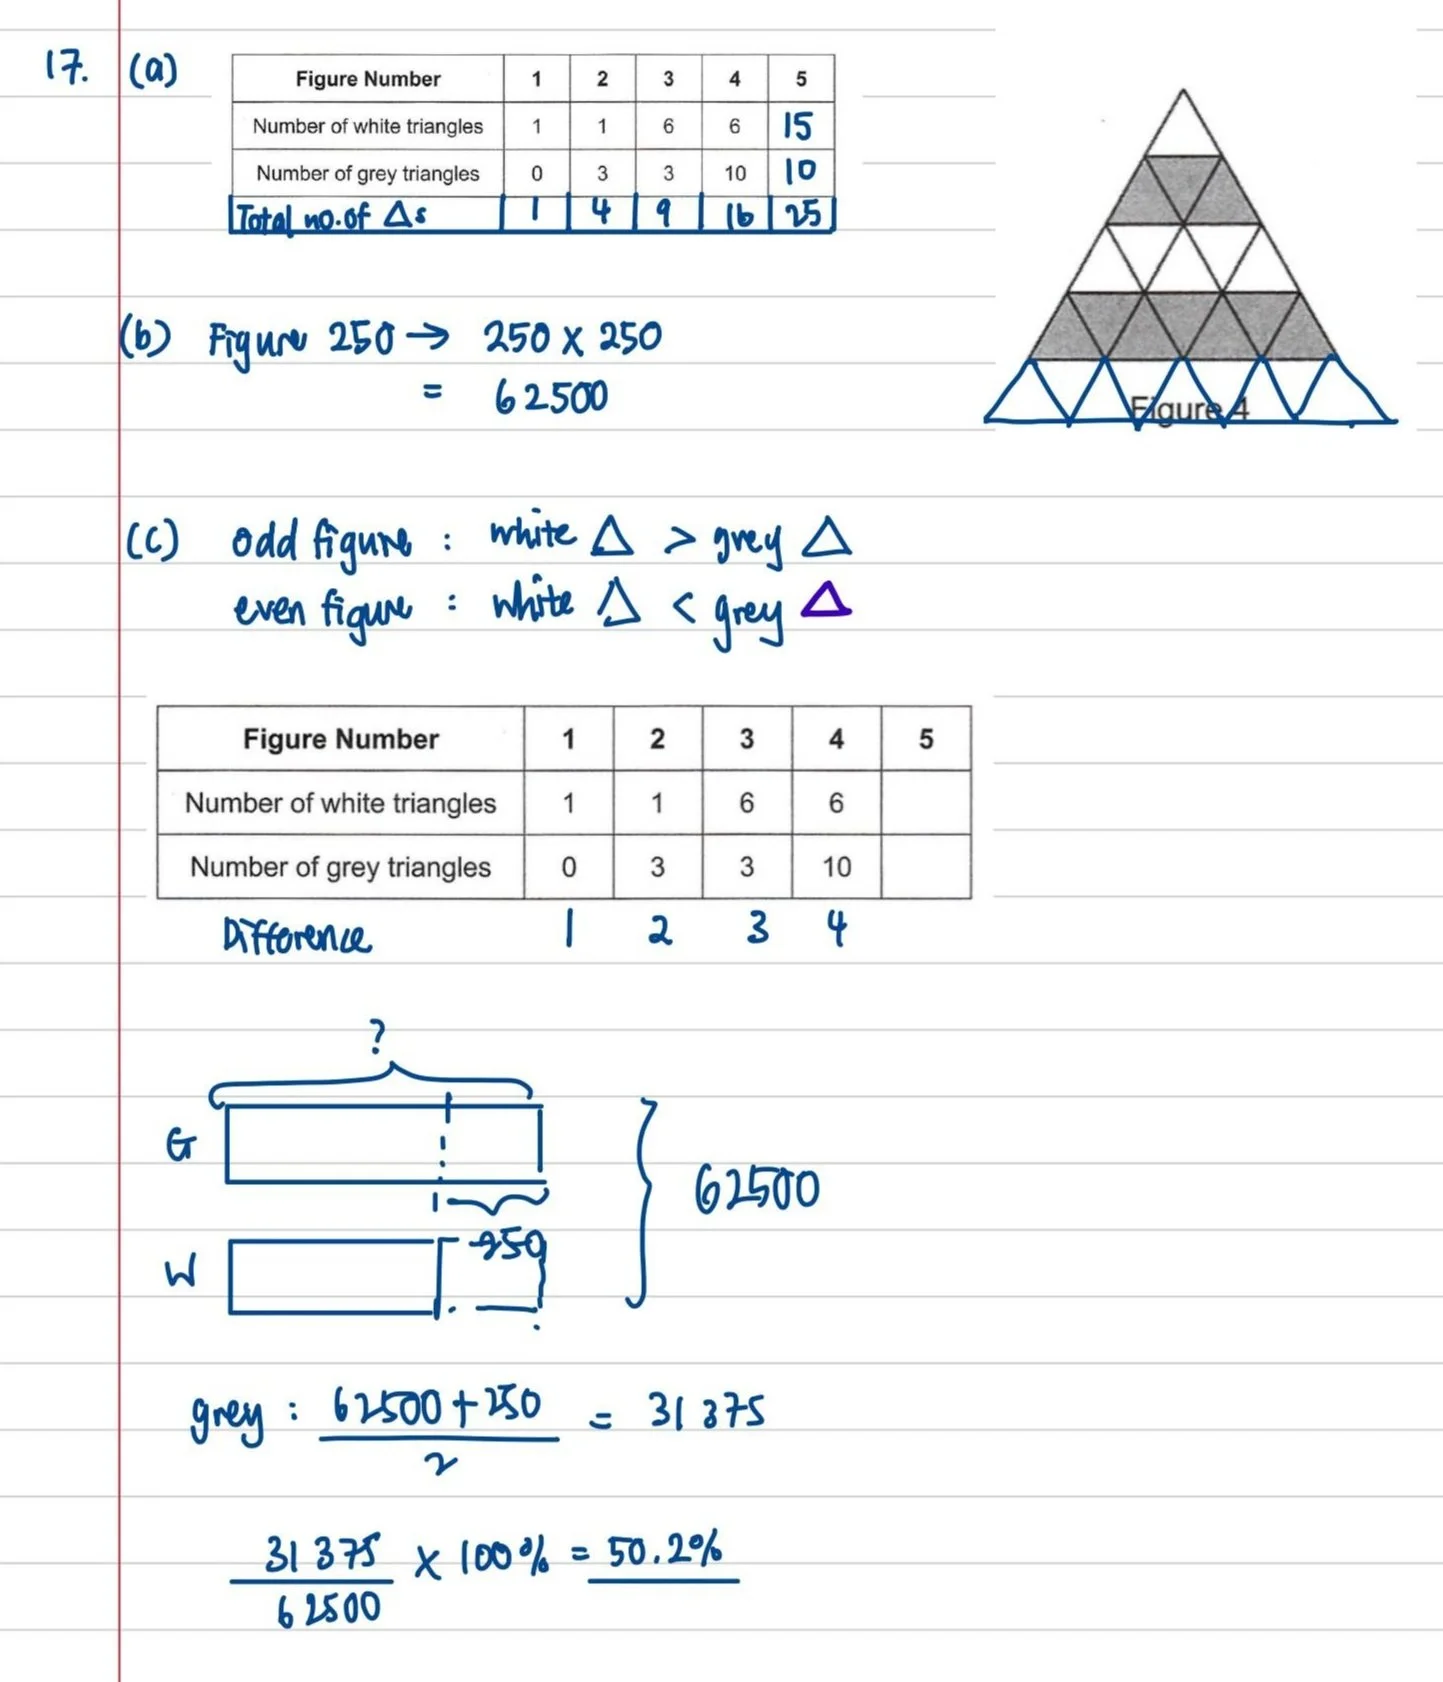 17. (a)
Figure Number 1 2 3 4 5
Number of white triangles 1 1 6 6 15
Number of grey triangles 0 3 3 10 10
Total no. of Δs 1 4 9 16 25
Figure 4
(b) Figure 250 → 250 × 250
= 62500
(c) odd figure : white Δ > grey Δ
even figure : white Δ < grey Δ
Figure Number 1 2 3 4 5
Number of white triangles 1 1 6 6
Number of grey triangles 0 3 3 10
Difference 1 2 3 4
?
G
62500
250
W
grey : 62500 + 250 = 31375
2
31375 × 100% = 50.2%
62500